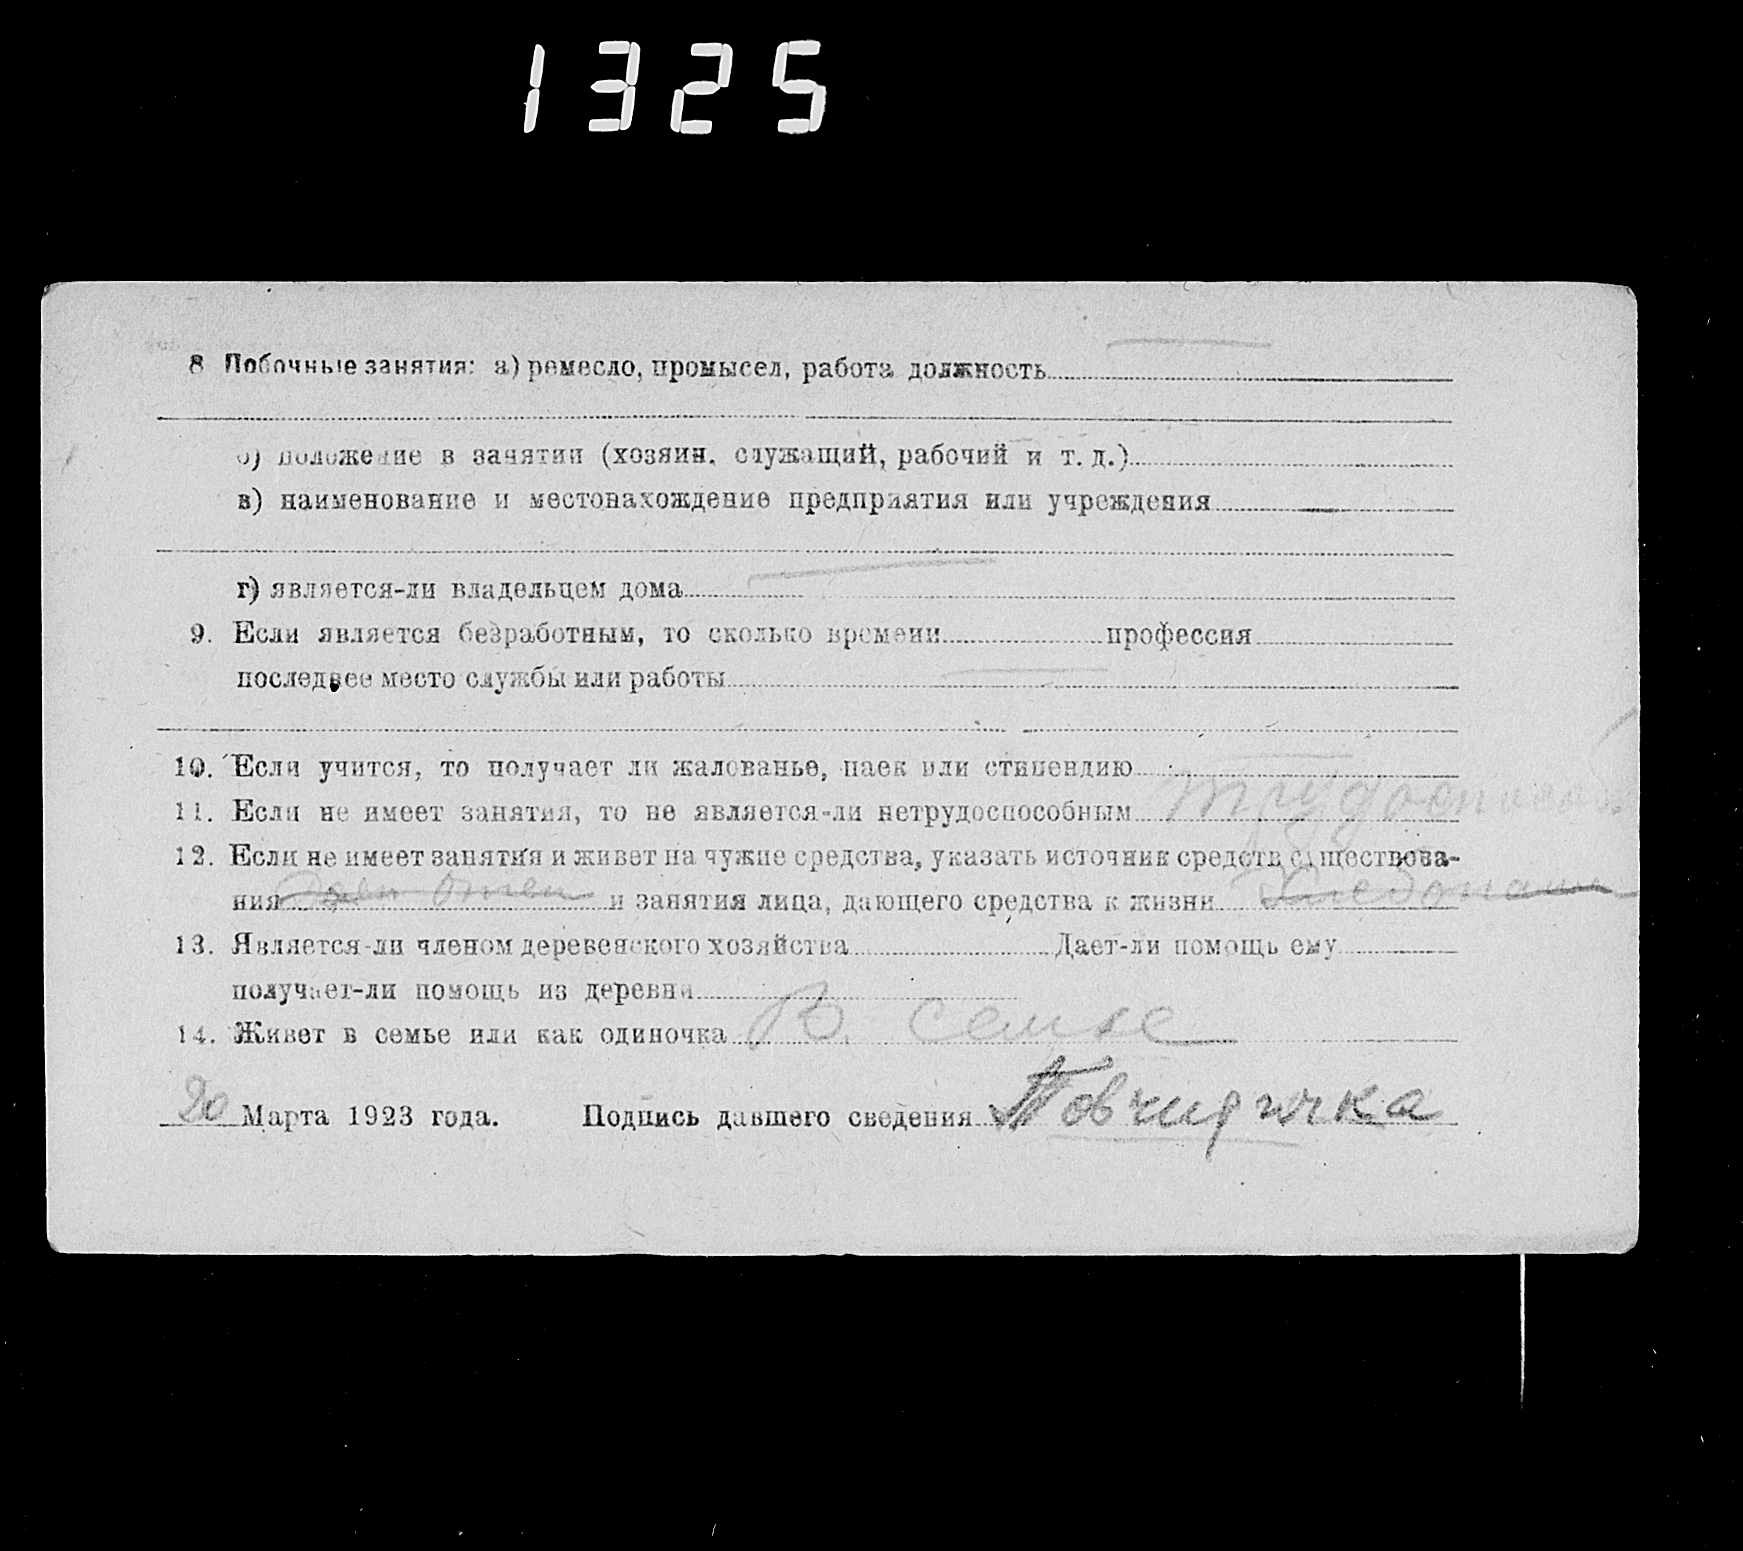 1325
8 Побочные занятия: а) ремесло, промысел, работа должность
б) положение в занятии (хозяин, служащий, рабочий и т. д.)
в) наименование и местонахождение предприятия или учреждения
г) является-ли владельцем дома
9. Если является безработным, то сколько времени профессия
последнее место службы или работы
10. Если учится, то получает ли жалованье, паек или стипендию
11. Если не имеет занятия, то не является-ли нетрудоспособным
12. Если не имеет занятия и живет на чужие средства, указать источник средств существова-
ния и занятия лица, дающего средства к жизни
13. Является-ли членом деревенского хозяйства Дает-ли помощь ему
получает-ли помощь из деревни
14. Живет в семье или как одиночка В семье
20 Марта 1923 года. Подпись давшего сведения